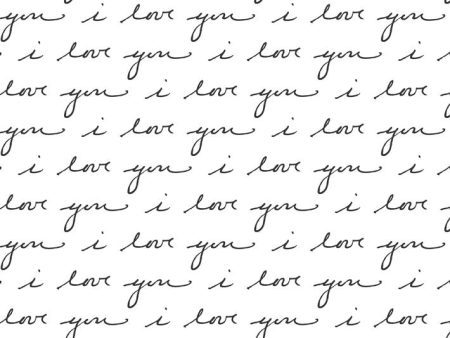 you i love you i love you
i love you i love you i
love you i love you i love
you i love you i love you
i love you i love you i
love you i love you i love
you i love you i love you
i love you i love you i
love you i love you i love